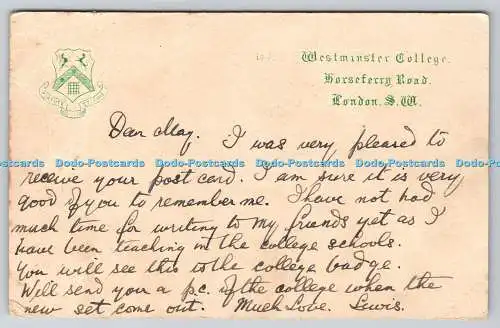 Westminster College.
Horseferry Road.
London. S.W.
Dear May. I was very pleased to
receive your post card. I am sure it is very
good of you to remember me. I have not had
much time for writing to my friends yet as I
have been teaching in the college schools.
You will see this is the college badge.
Will send you a p.c. of the college when the
new set come out. Much Love. Lewis.
Dodo-Postcards Dodo-Postcards Dodo-Postcards Dodo-Postcards Dodo-Postcards